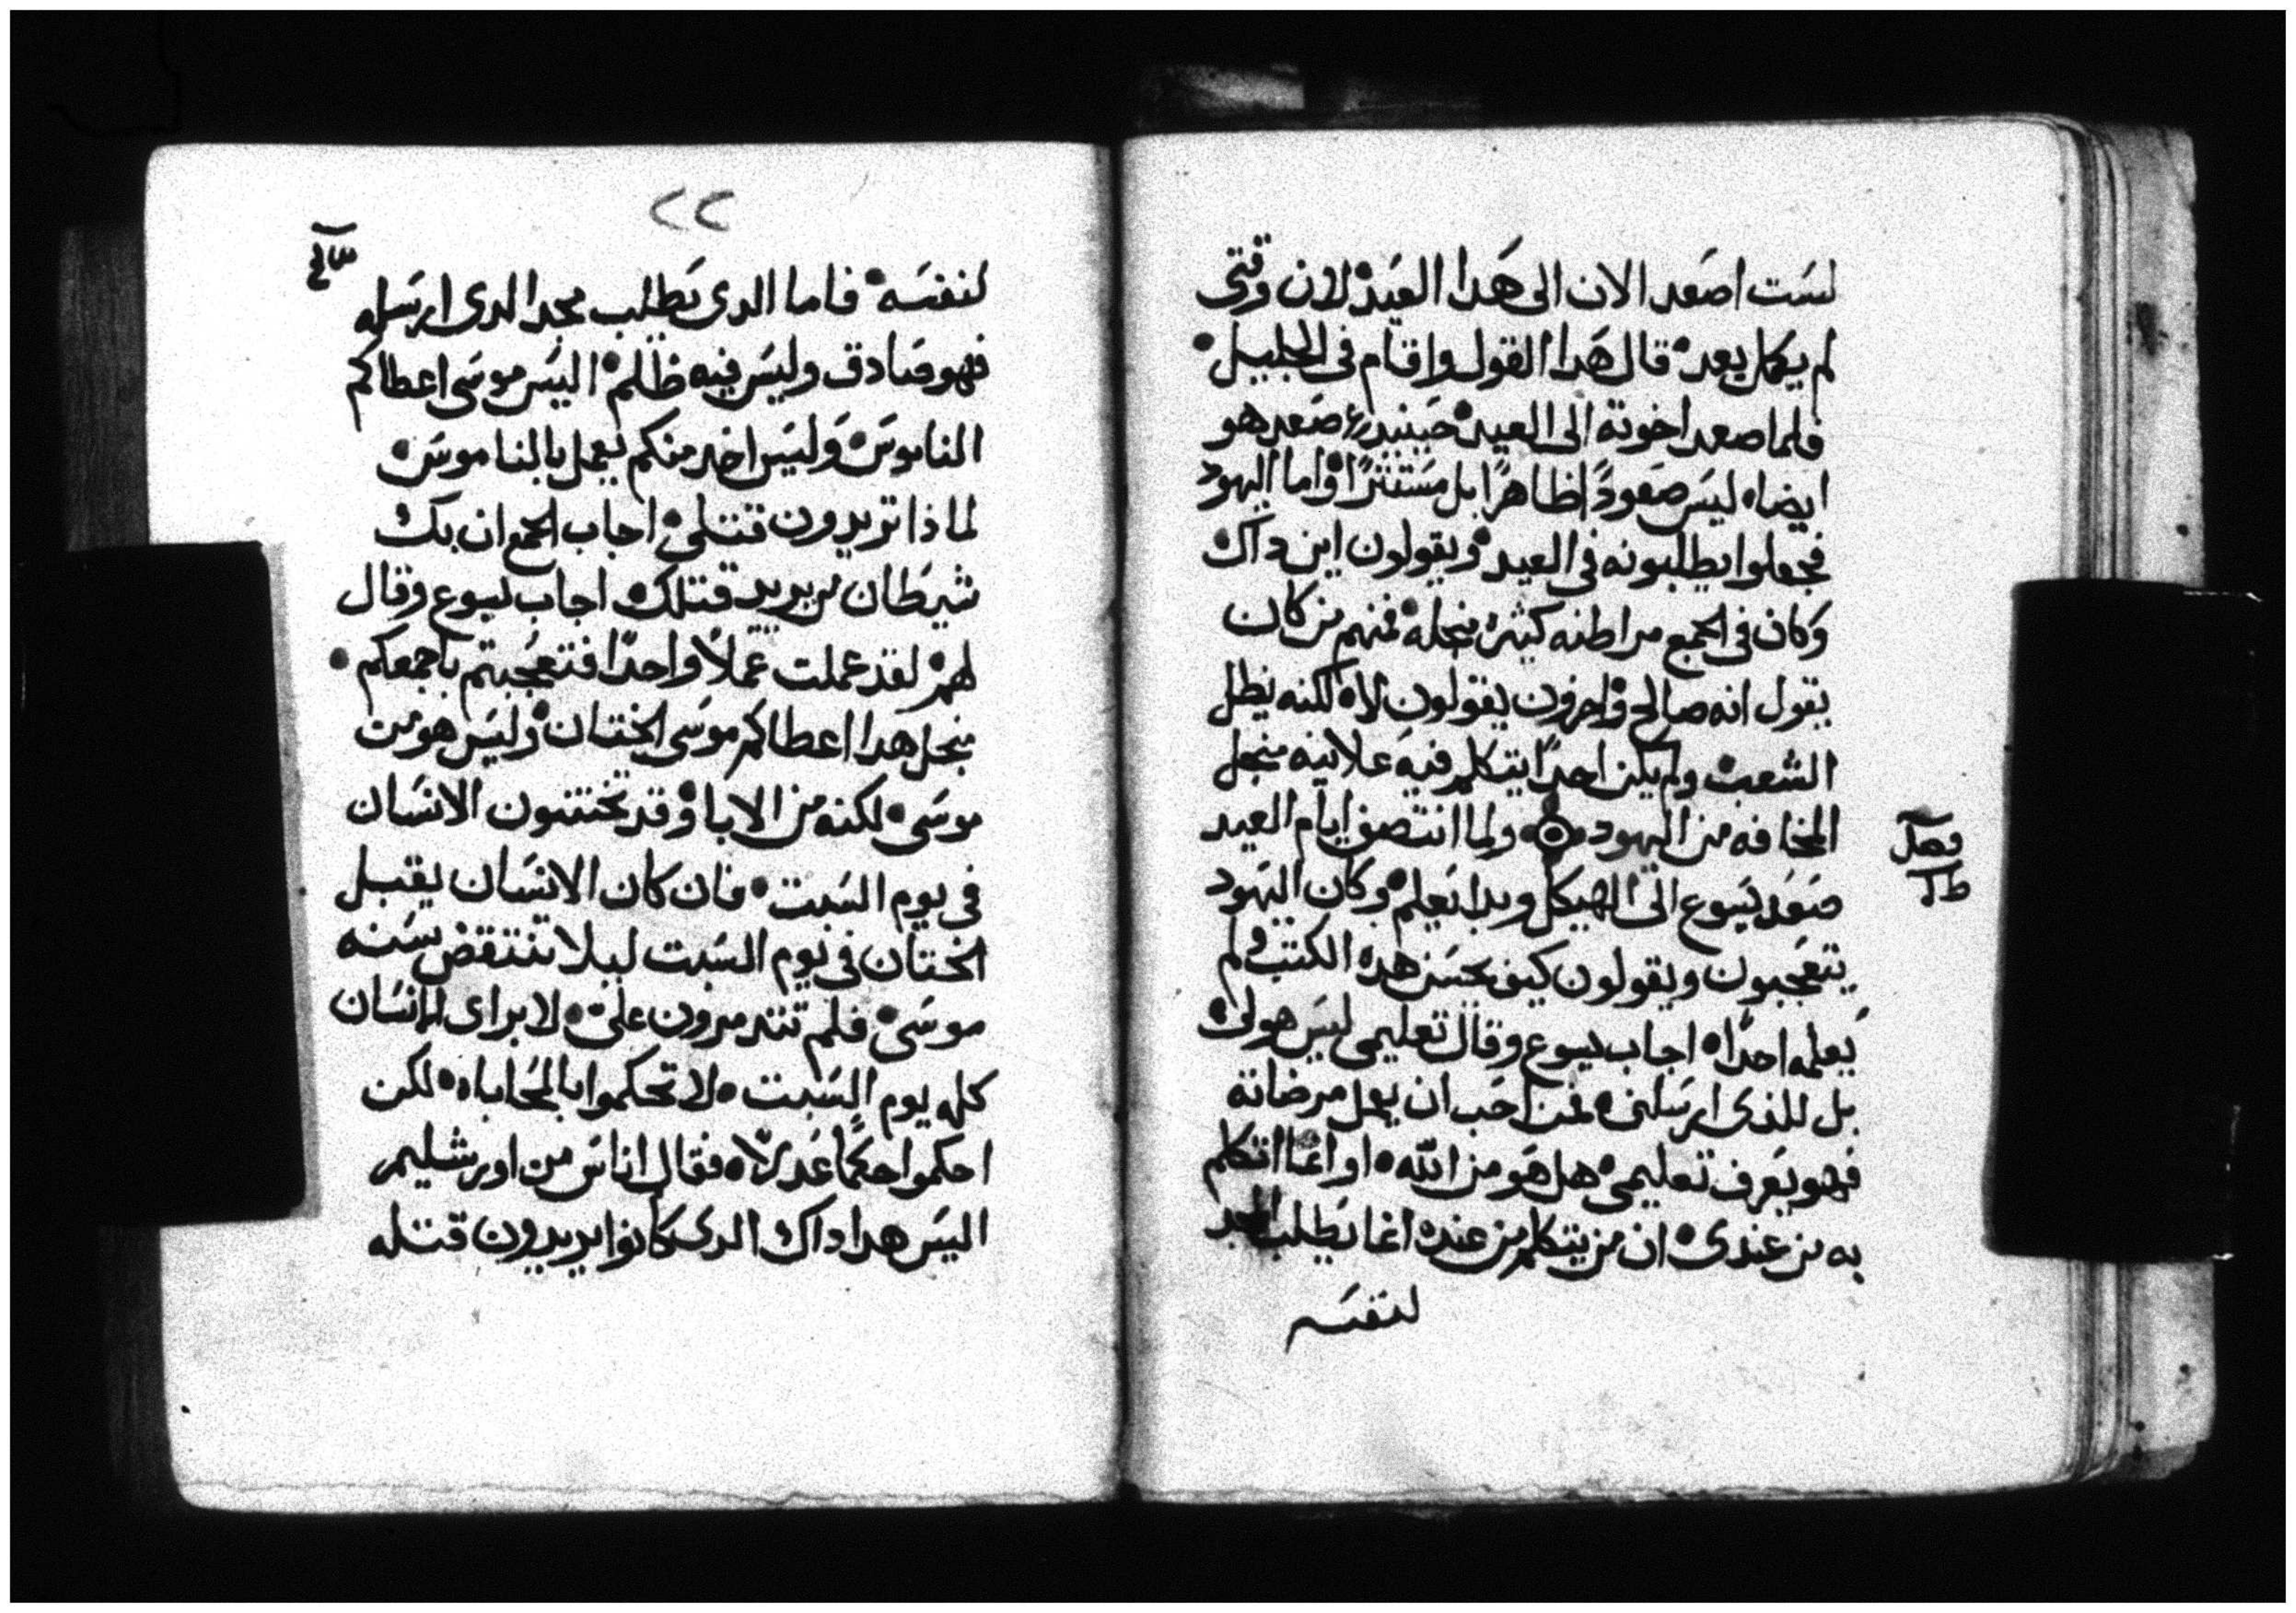 لست اصعد الان الى هدا العيد لان وقتى
لم يكمل بعد قال هدا القول واقام فى الجليل
فلما صعد اخوته الى العيد حينيد صعد هو
ايضا ليس صعودًا ظاهرًا بل مستترًا واما اليهود
فجعلوا يطلبونه فى العيد ويقولون اين داك
وكان فى الجمع مراطنه كثيره منجله فمنهم من كان
يقول انه صالح واخرون يقولون لا لكنه يظل
الشعب ولم يكن احدًا يتكلم فيه علانيه منجل
المخافه من اليهود ولما انتصف ايام العيد
فصل
صعد يسوع الى الهيكل وبدا يعلم وكان اليهود
يتعجبون ويقولون كيف يحسن هده الكتب ولم
يعلمه احدًا اجاب يسوع وقال تعليمى ليس هو لى
بل للذى ارسلنى فمن احب ان يعمل مرضاته
فهو يعرف تعليمى هل هو من الله او انما اتكلم
به من عندى ان من يتكلم من عنده انما يطلب المجد
لنفسه
٢٢
لنفسه فاما الدى يطلب مجد الدى ارسله
فهو صادق وليس فيه ظلم اليس موسى اعطاكم
الناموس وليس احد منكم يعمل بالناموس
لماذا تريدون قتلى اجاب الجمع ان بك
شيطان من يريد قتلك اجاب يسوع وقال
لهم لقد عملت عملًا واحدًا فتعجبتم باجمعكم
منجل هدا اعطاكم موسى الختان وليس هو من
موسى لكنه من الابا وقد تختنون الانسان
فى يوم السبت فان كان الانسان يقبل
الختان فى يوم السبت ليلا تنتقض سنه
موسى فلم تتدمرون على لابراى الانسان
كله يوم السبت لا تحكموا بالمحاباه لكن
احكموا حكمًا عدلًا فقال اناس من اورشليم
اليس هدا داك الدى كانوا يريدون قتله